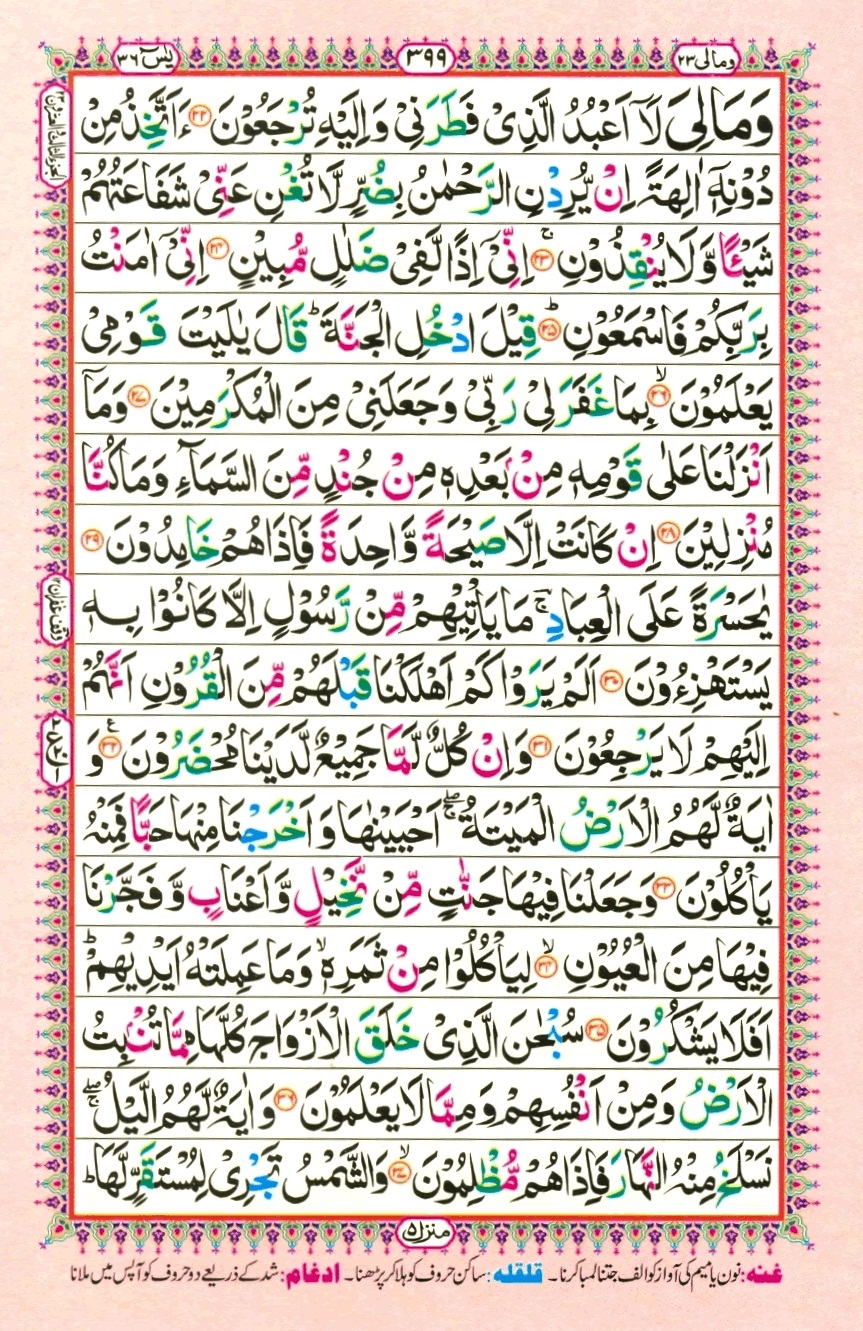 وَمَالِیَ ۲۳
۳۹۹
یٰسٓ ۳۶
وَمَا لِیَ لَاۤ اَعْبُدُ الَّذِیْ فَطَرَنِیْ وَاِلَیْهِ تُرْجَعُوْنَ ﴿۲۲﴾ ءَاَتَّخِذُ مِنْ
دُوْنِهٖۤ اٰلِهَةً اِنْ یُّرِدْنِ الرَّحْمٰنُ بِضُرٍّ لَّا تُغْنِ عَنِّیْ شَفَاعَتُهُمْ
شَیْـًٔا وَّلَا یُنْقِذُوْنِ ۚ﴿۲۳﴾ اِنِّیْۤ اِذًا لَّفِیْ ضَلٰلٍ مُّبِیْنٍ ﴿۲۴﴾ اِنِّیْۤ اٰمَنْتُ
بِرَبِّكُمْ فَاسْمَعُوْنِ ؕ﴿۲۵﴾ قِیْلَ ادْخُلِ الْجَنَّةَ ؕ قَالَ یٰلَیْتَ قَوْمِیْ
یَعْلَمُوْنَ ۙ﴿۲۶﴾ بِمَا غَفَرَ لِیْ رَبِّیْ وَجَعَلَنِیْ مِنَ الْمُكْرَمِیْنَ ﴿۲۷﴾ وَمَاۤ
اَنْزَلْنَا عَلٰی قَوْمِهٖ مِنْۢ بَعْدِهٖ مِنْ جُنْدٍ مِّنَ السَّمَآءِ وَمَا كُنَّا
مُنْزِلِیْنَ ﴿۲۸﴾ اِنْ كَانَتْ اِلَّا صَیْحَةً وَّاحِدَةً فَاِذَا هُمْ خَامِدُوْنَ ﴿۲۹﴾
یٰحَسْرَةً عَلَی الْعِبَادِ ۚؔ مَا یَاْتِیْهِمْ مِّنْ رَّسُوْلٍ اِلَّا كَانُوْا بِهٖ
یَسْتَهْزِءُوْنَ ﴿۳۰﴾ اَلَمْ یَرَوْا كَمْ اَهْلَكْنَا قَبْلَهُمْ مِّنَ الْقُرُوْنِ اَنَّهُمْ
اِلَیْهِمْ لَا یَرْجِعُوْنَ ﴿۳۱﴾ وَاِنْ كُلٌّ لَّمَّا جَمِیْعٌ لَّدَیْنَا مُحْضَرُوْنَ ﴿۳۲﴾ ع وَ
اٰیَةٌ لَّهُمُ الْاَرْضُ الْمَیْتَةُ ۚۖ اَحْیَیْنٰهَا وَاَخْرَجْنَا مِنْهَا حَبًّا فَمِنْهُ
یَاْكُلُوْنَ ﴿۳۳﴾ وَجَعَلْنَا فِیْهَا جَنّٰتٍ مِّنْ نَّخِیْلٍ وَّاَعْنَابٍ وَّفَجَّرْنَا
فِیْهَا مِنَ الْعُیُوْنِ ۙ﴿۳۴﴾ لِیَاْكُلُوْا مِنْ ثَمَرِهٖ ۙ وَمَا عَمِلَتْهُ اَیْدِیْهِمْ ؕ
اَفَلَا یَشْكُرُوْنَ ﴿۳۵﴾ سُبْحٰنَ الَّذِیْ خَلَقَ الْاَزْوَاجَ كُلَّهَا مِمَّا تُنْۢبِتُ
الْاَرْضُ وَمِنْ اَنْفُسِهِمْ وَمِمَّا لَا یَعْلَمُوْنَ ﴿۳۶﴾ وَاٰیَةٌ لَّهُمُ الَّیْلُ ۚۖ
نَسْلَخُ مِنْهُ النَّهَارَ فَاِذَا هُمْ مُّظْلِمُوْنَ ۙ﴿۳۷﴾ وَالشَّمْسُ تَجْرِیْ لِمُسْتَقَرٍّ لَّهَا ؕ
وقف غفران
منزل ۵
غنه: نون یا میم کی آواز کو الف جتنا لمبا کرنا۔ قلقله: ساکن حروف کو ہلا کر پڑھنا۔ ادغام: شد کے ذریعے دو حروف کو آپس میں ملانا